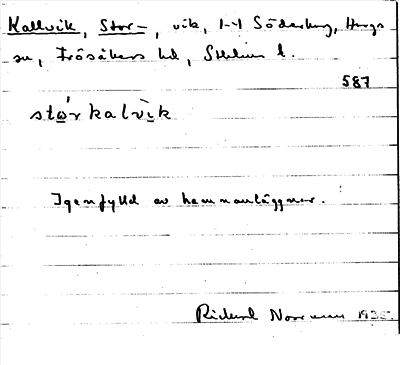 Kallvik, Stor-, vik, 1-1 Söderby, Hargs
sn, Frösåkers hd, Sthlms l.
587
størkalvìk
Igenfylld av hamnanläggner.
Richard Norrman 1935.